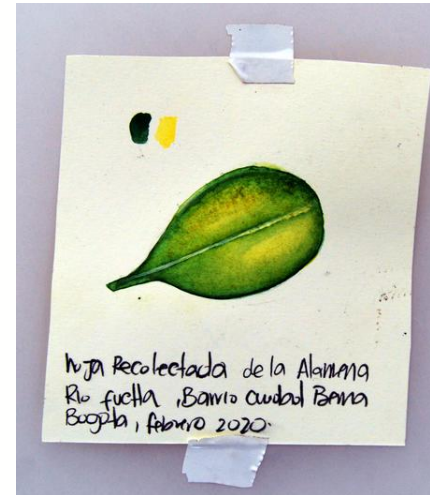 hoja Recolectada de la Alameda
Río fucha, Barrio Ciudad Berna
Bogota, febrero 2020.